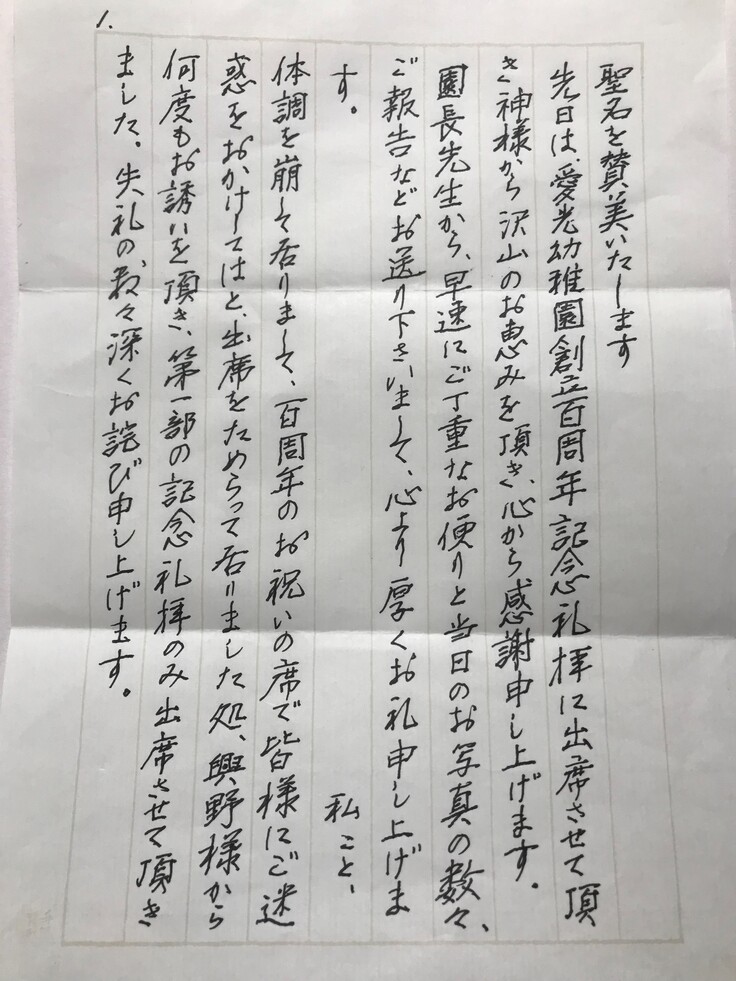 1.
聖名を賛美いたします
先日は、愛光幼稚園創立百周年記念礼拝に出席させて頂
き神様から沢山のお恵みを頂き、心から感謝申し上げます。
園長先生から、早速にご丁重なお便りと当日のお写真の数々、
ご報告などお送り下さいまして、心より厚くお礼申し上げま
す。
私こと、
体調を崩して居りまして、百周年のお祝いの席で皆様にご迷
惑をおかけしてはと、出席をためらって居りました処、興野様から
何度もお誘いを頂き、第一部の記念礼拝のみ出席させて頂き
ました。失礼の数々深くお詫び申し上げます。